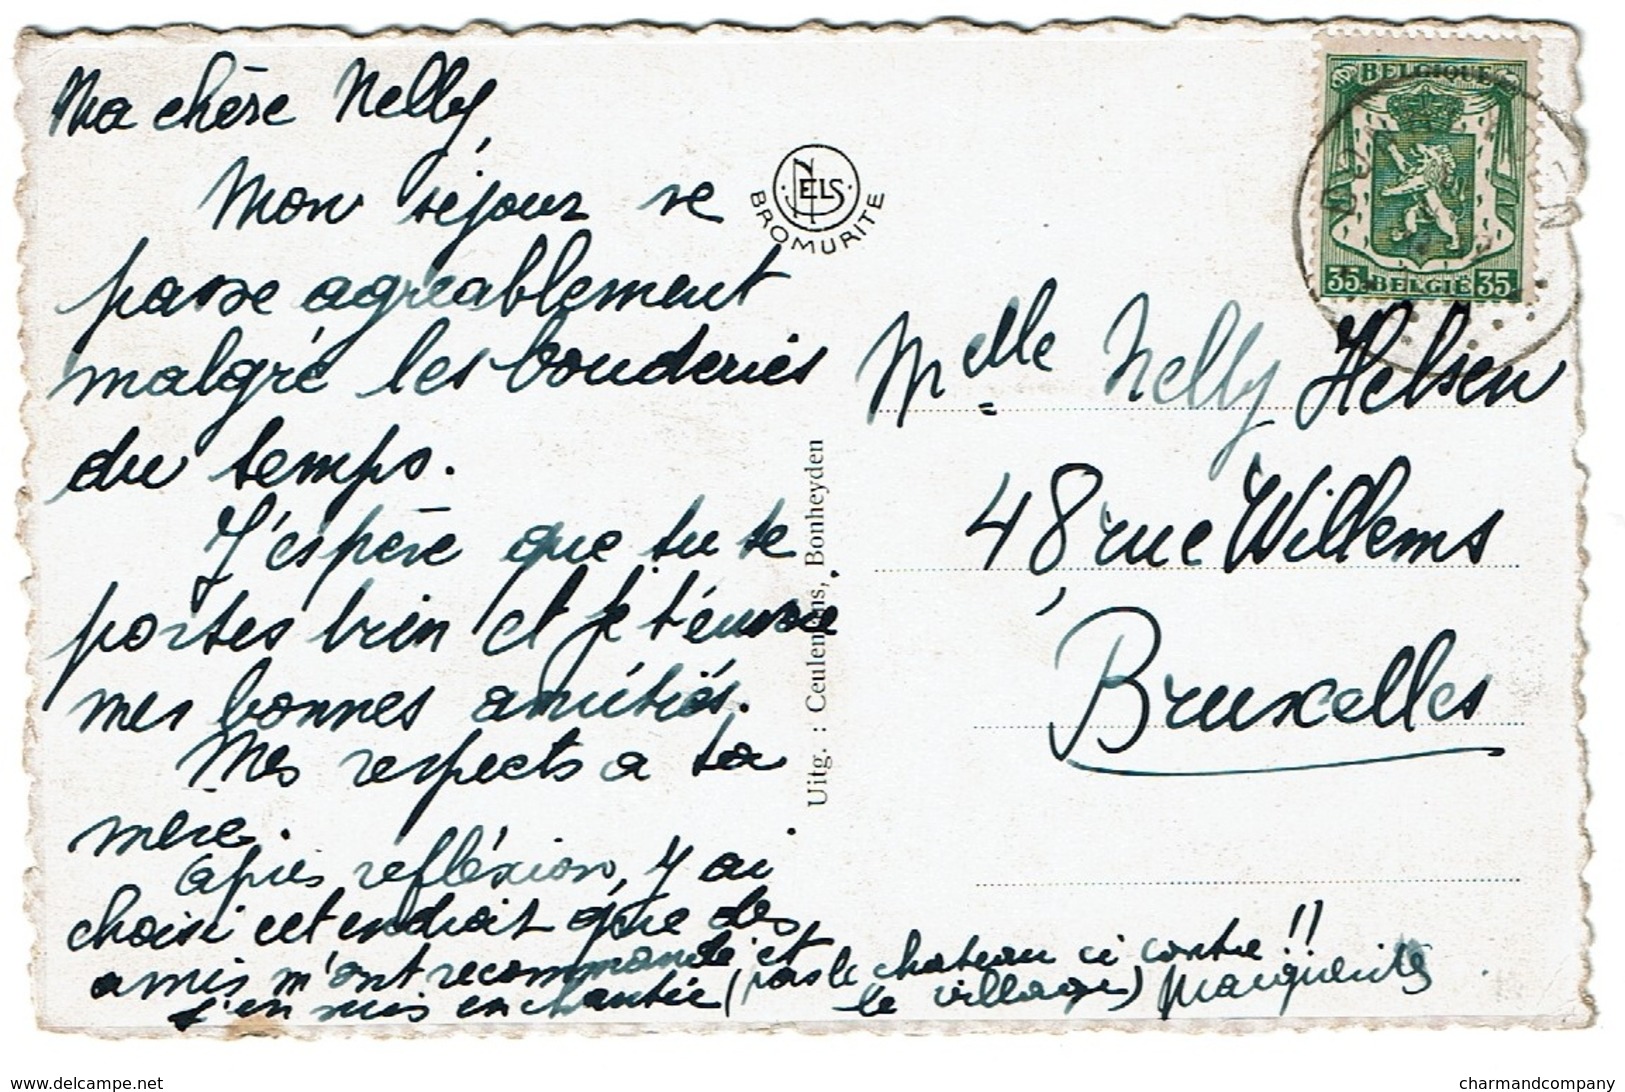 Ma chère Nelly,
Mon séjour se
passe agréablement
malgré les bouderies
du temps.
J'espère que tu te
portes bien et je t'envoie
mes bonnes amitiés.
Mes respects a ta
mère.
après refléxion, j'ai
choisi cet endroit que des
amis m'ont recommandé et
j'en suis enchantée (pas le chateau ci contre!!
le village) Marguerite
NELS
BROMURITE
Uitg. : Ceulemans, Bonheyden
BELGIQUE
35 BELGIË 35
Melle Nelly Helsen
48, rue Willems
Bruxelles
delcampe.net
charmandcompany